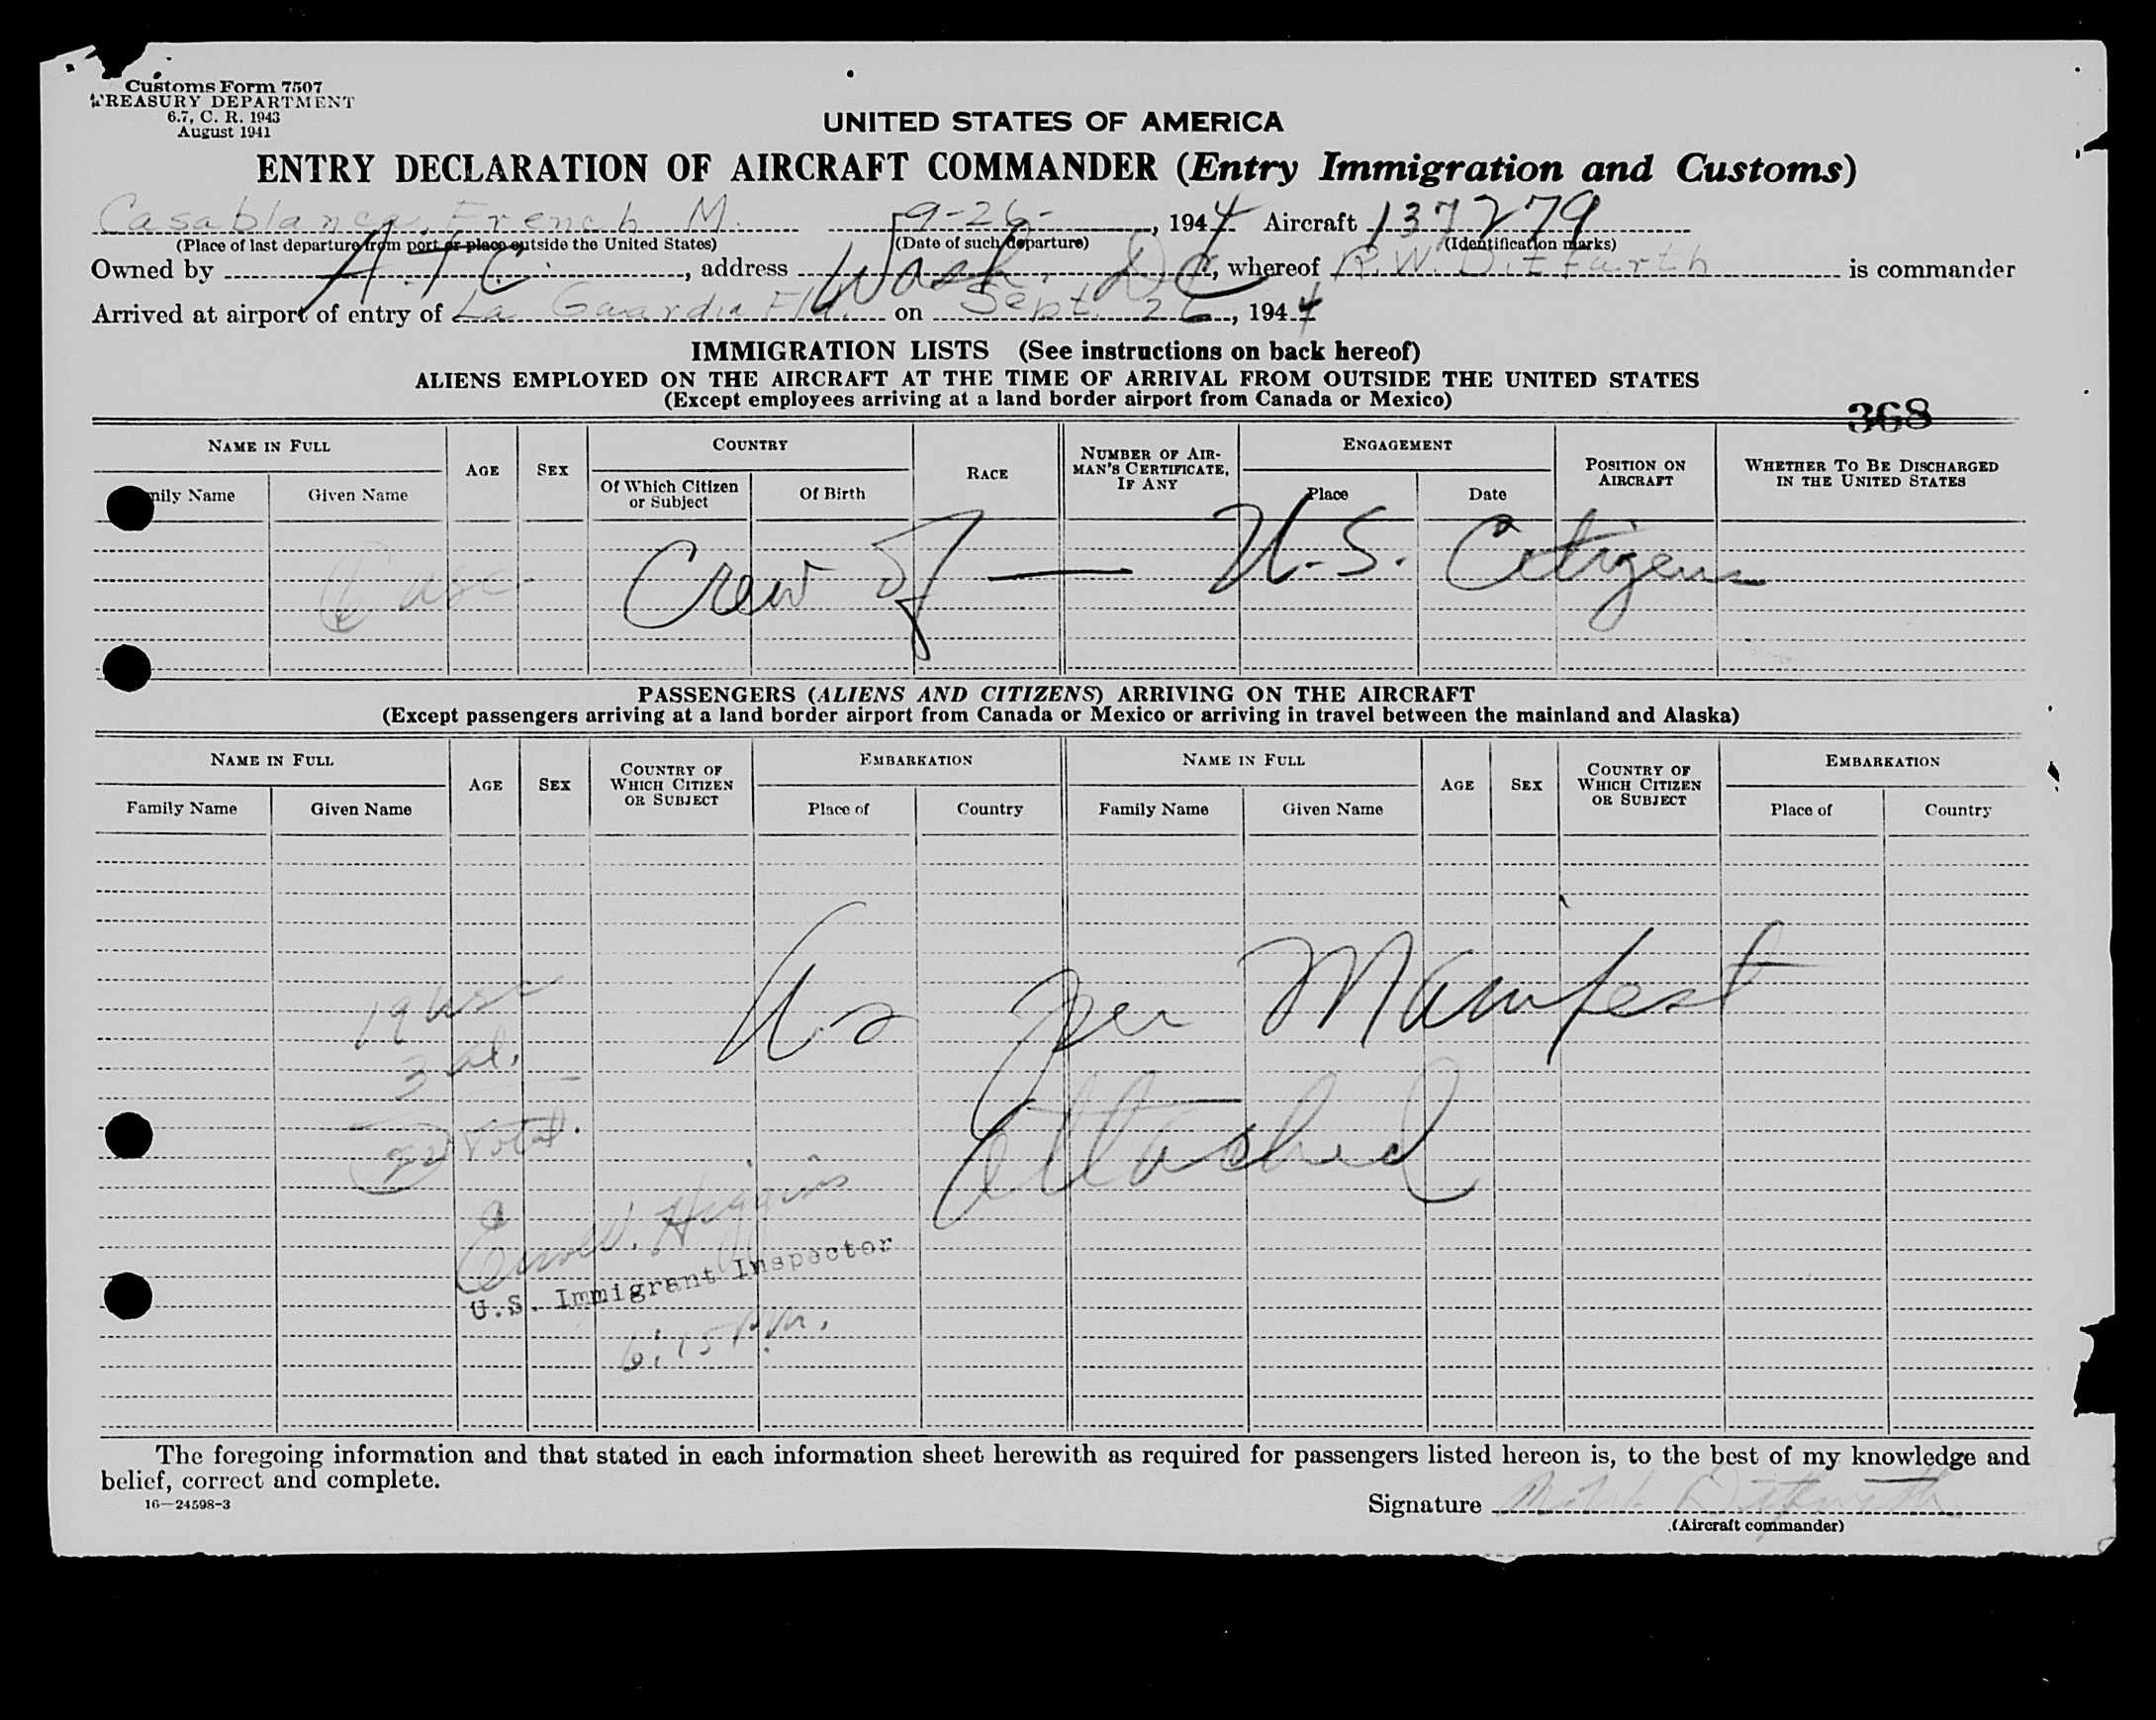 Customs Form 7507
TREASURY DEPARTMENT
6.7, C. R. 1943
August 1941
UNITED STATES OF AMERICA
ENTRY DECLARATION OF AIRCRAFT COMMANDER (Entry Immigration and Customs)
Casablanca, French M. 9-26-, 1944 Aircraft 137279
(Place of last departure from port or place outside the United States) (Date of such departure) (Identification marks)
Owned by A.T.C., address Wash. DC, whereof R.W. Ditfurth is commander
Arrived at airport of entry of La Guardia Fld. on Sept. 26, 1944
IMMIGRATION LISTS (See instructions on back hereof)
ALIENS EMPLOYED ON THE AIRCRAFT AT THE TIME OF ARRIVAL FROM OUTSIDE THE UNITED STATES
(Except employees arriving at a land border airport from Canada or Mexico)
368
NAME IN FULL AGE SEX COUNTRY RACE NUMBER OF AIRMAN'S CERTIFICATE, IF ANY ENGAGEMENT POSITION ON AIRCRAFT WHETHER TO BE DISCHARGED IN THE UNITED STATES
mily Name Given Name Of Which Citizen or Subject Of Birth Place Date
usc. Crew of — U.S. Citizens
PASSENGERS (ALIENS AND CITIZENS) ARRIVING ON THE AIRCRAFT
(Except passengers arriving at a land border airport from Canada or Mexico or arriving in travel between the mainland and Alaska)
NAME IN FULL AGE SEX COUNTRY OF WHICH CITIZEN OR SUBJECT EMBARKATION NAME IN FULL AGE SEX COUNTRY OF WHICH CITIZEN OR SUBJECT EMBARKATION
Family Name Given Name Place of Country Family Name Given Name Place of Country
19 usc As per Manifest
3 al.
22 Total. Attached
W. Higgins
U.S. Immigrant Inspector
6:15 P.M.
The foregoing information and that stated in each information sheet herewith as required for passengers listed hereon is, to the best of my knowledge and
belief, correct and complete.
16—24598-3
Signature R.W. Ditfurth
(Aircraft commander)